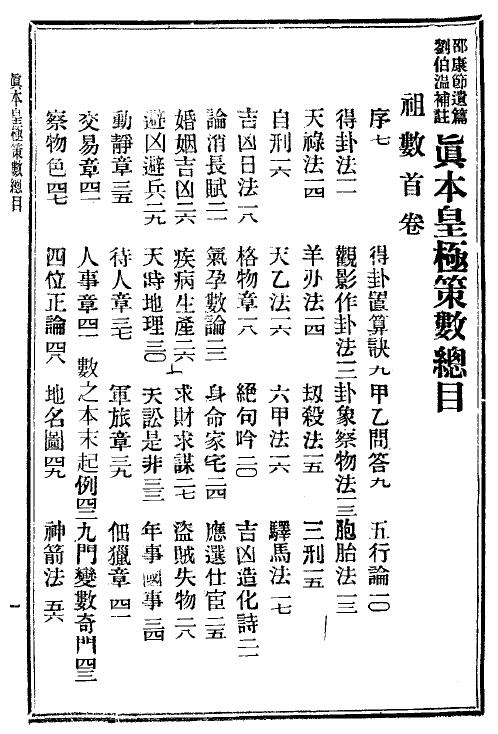 邵康節遺篇
劉伯溫補註
眞本皇極策數總目
祖數首卷
序七 得卦置算訣九 甲乙問答九 五行論一〇
得卦法一一 觀影作卦法一三 卦象察物法一三 胞胎法一三
天祿法一四 羊刅法一四 刼殺法一五 三刑一五
自刑一六 天乙法一六 六甲法一六 驛馬法一七
吉凶日法一八 格物章一八 絕句吟二〇 吉凶造化詩二一
論消長賦二一 氣孕數論二二 身命家宅二四 應選仕宦二五
婚姻吉凶二六 疾病生產二六 求財求謀二七 盜賊失物二八
避凶避兵二九 天時地理三〇 天訟是非三三 年事國事三四
動靜章三五 待人章三七 軍旅章三九 佃獵章四一
交易章四一 人事章四一 數之本末起例四三 九門變數奇門四三
察物色四七 四位正論四八 地名圖四九 神箭法五六
眞本皇極策數總目
一